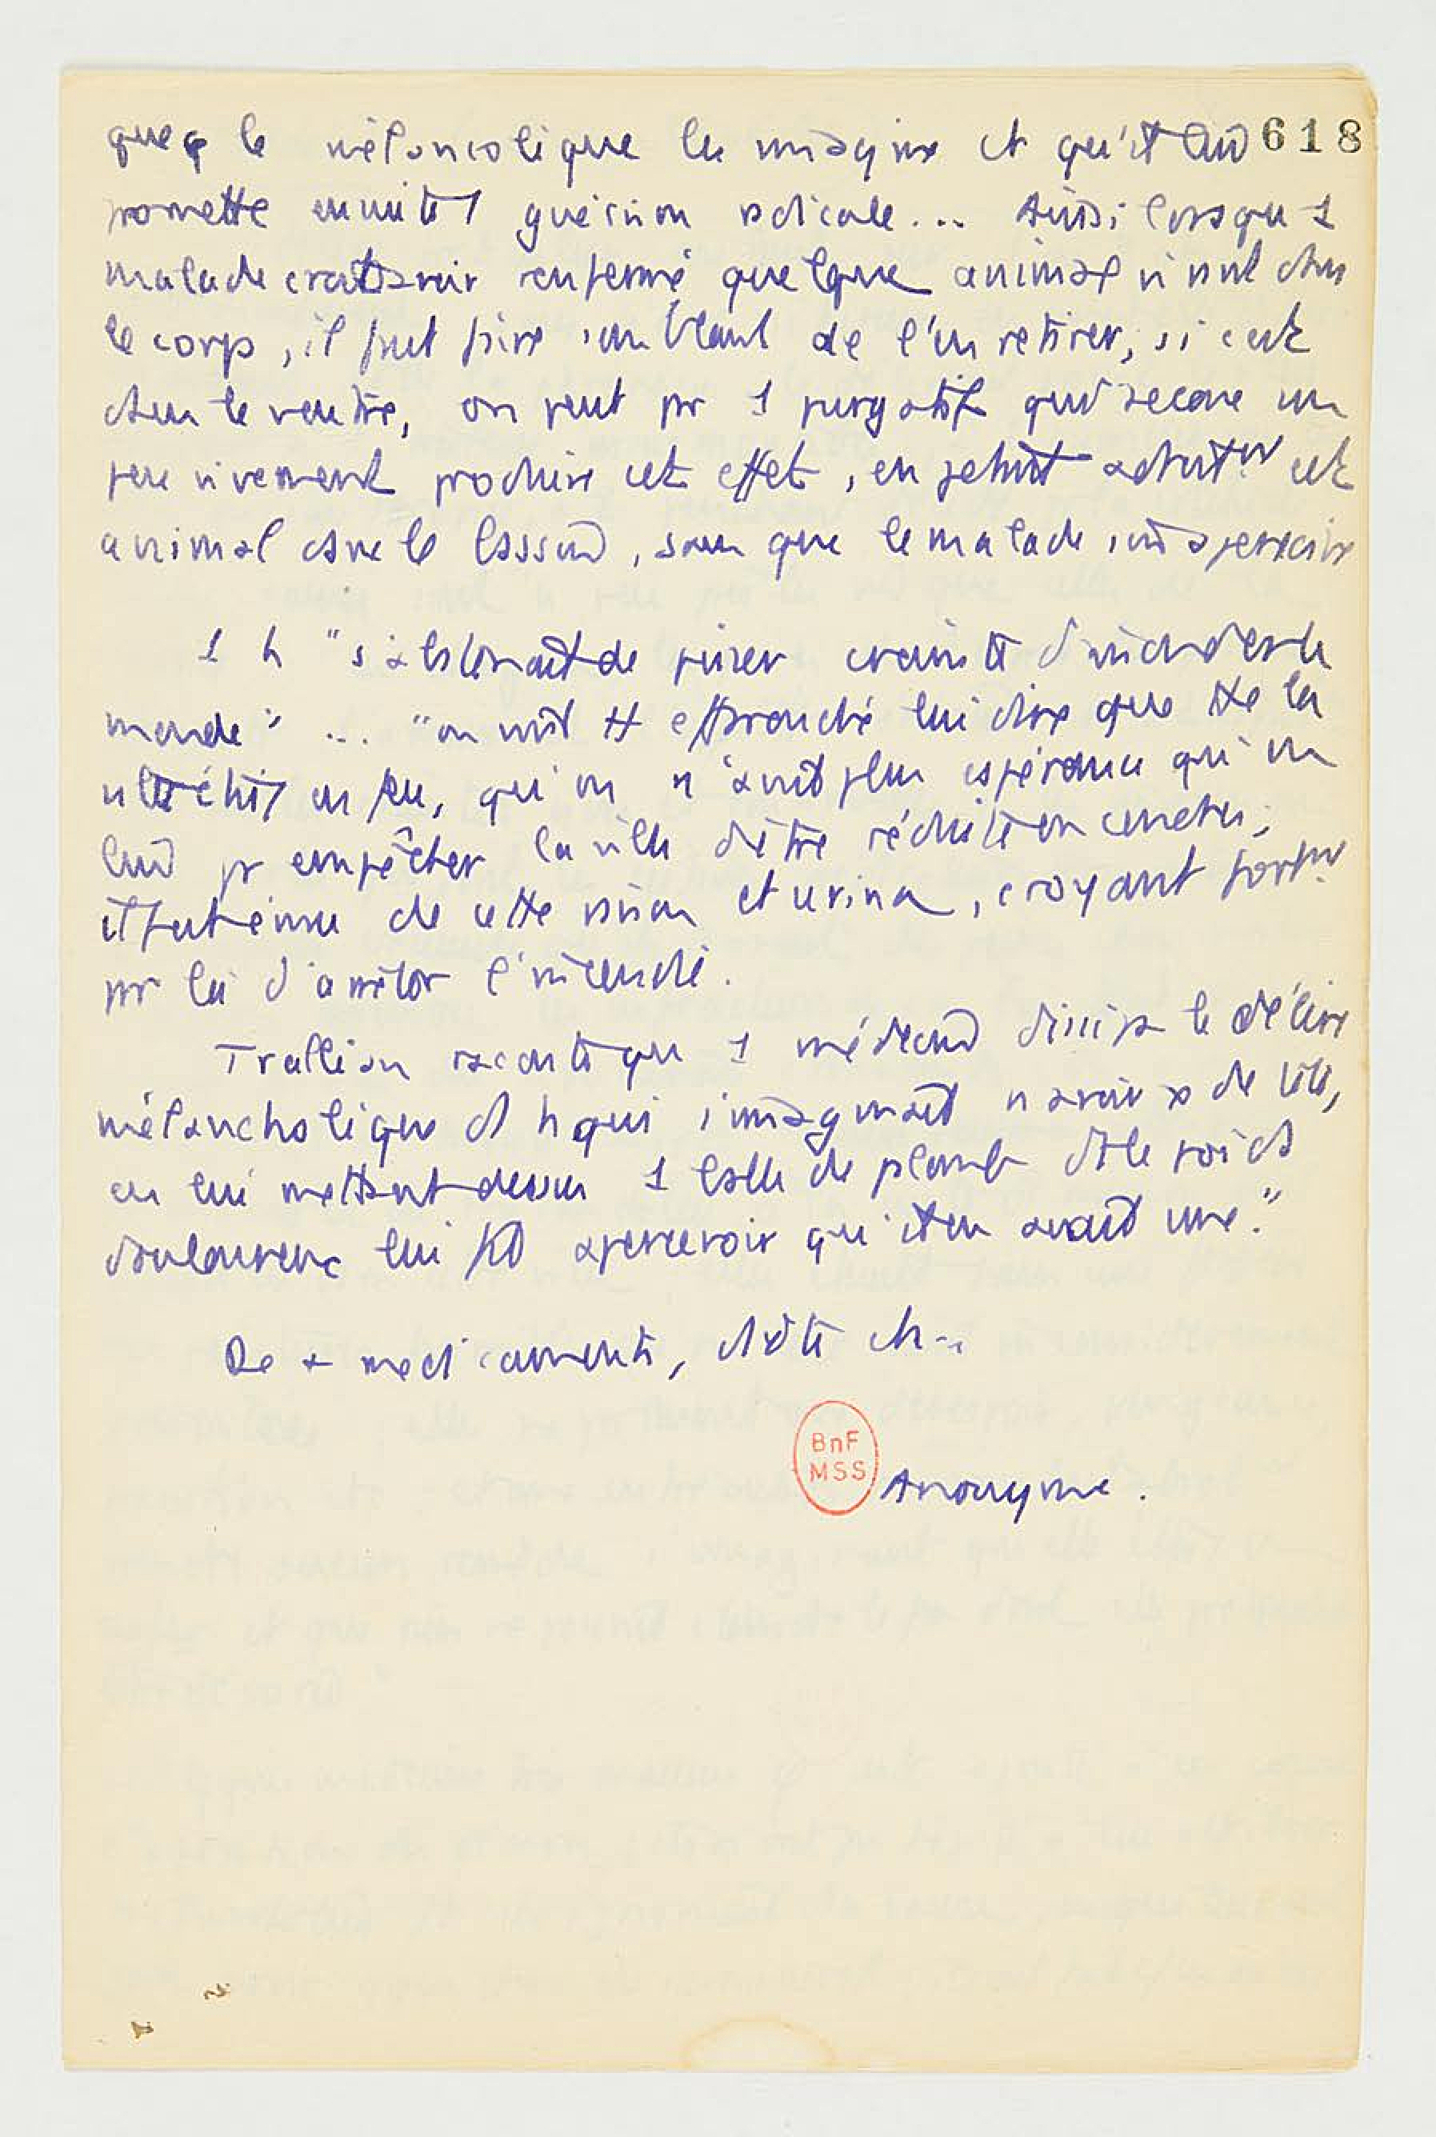 que le mélancolique les imagine et qu'il lui 618
promette ensuite 1 guérison radicale... Ainsi lorsqu'1
malade croit avoir renfermé quelque animal vivant dans
le corps, il faut faire semblant de l'en retirer, si c'est
dans le ventre, on peut par 1 purgatif qui secoue un
peu vivement produire cet effet, en jetant adroitemt cet
animal dans le bassin, sans que le malade s'en aperçoive
1 h "s'abstenait de pisser crainte d'inonder le
monde" ... "on vint tt effarouché lui dire que tte la
ville était en feu, qu'on n'avait plus espérance qu'en
lui pr empêcher la ville d'être réduite en cendres;
il fut ému de cette et urina, croyant fortmt
par là d'arrêter l'incendie.
Trallian raconte qu'1 médecin dissipa le délire
mélancholique d'1 h qui s'imaginait n'avoir pas de tête,
en lui mettant dessus 1 balle de plomb dt le poids
douloureux lui fit apercevoir qu'il en avait une."
De medicaments,
BnF
MSS
Anonyme.